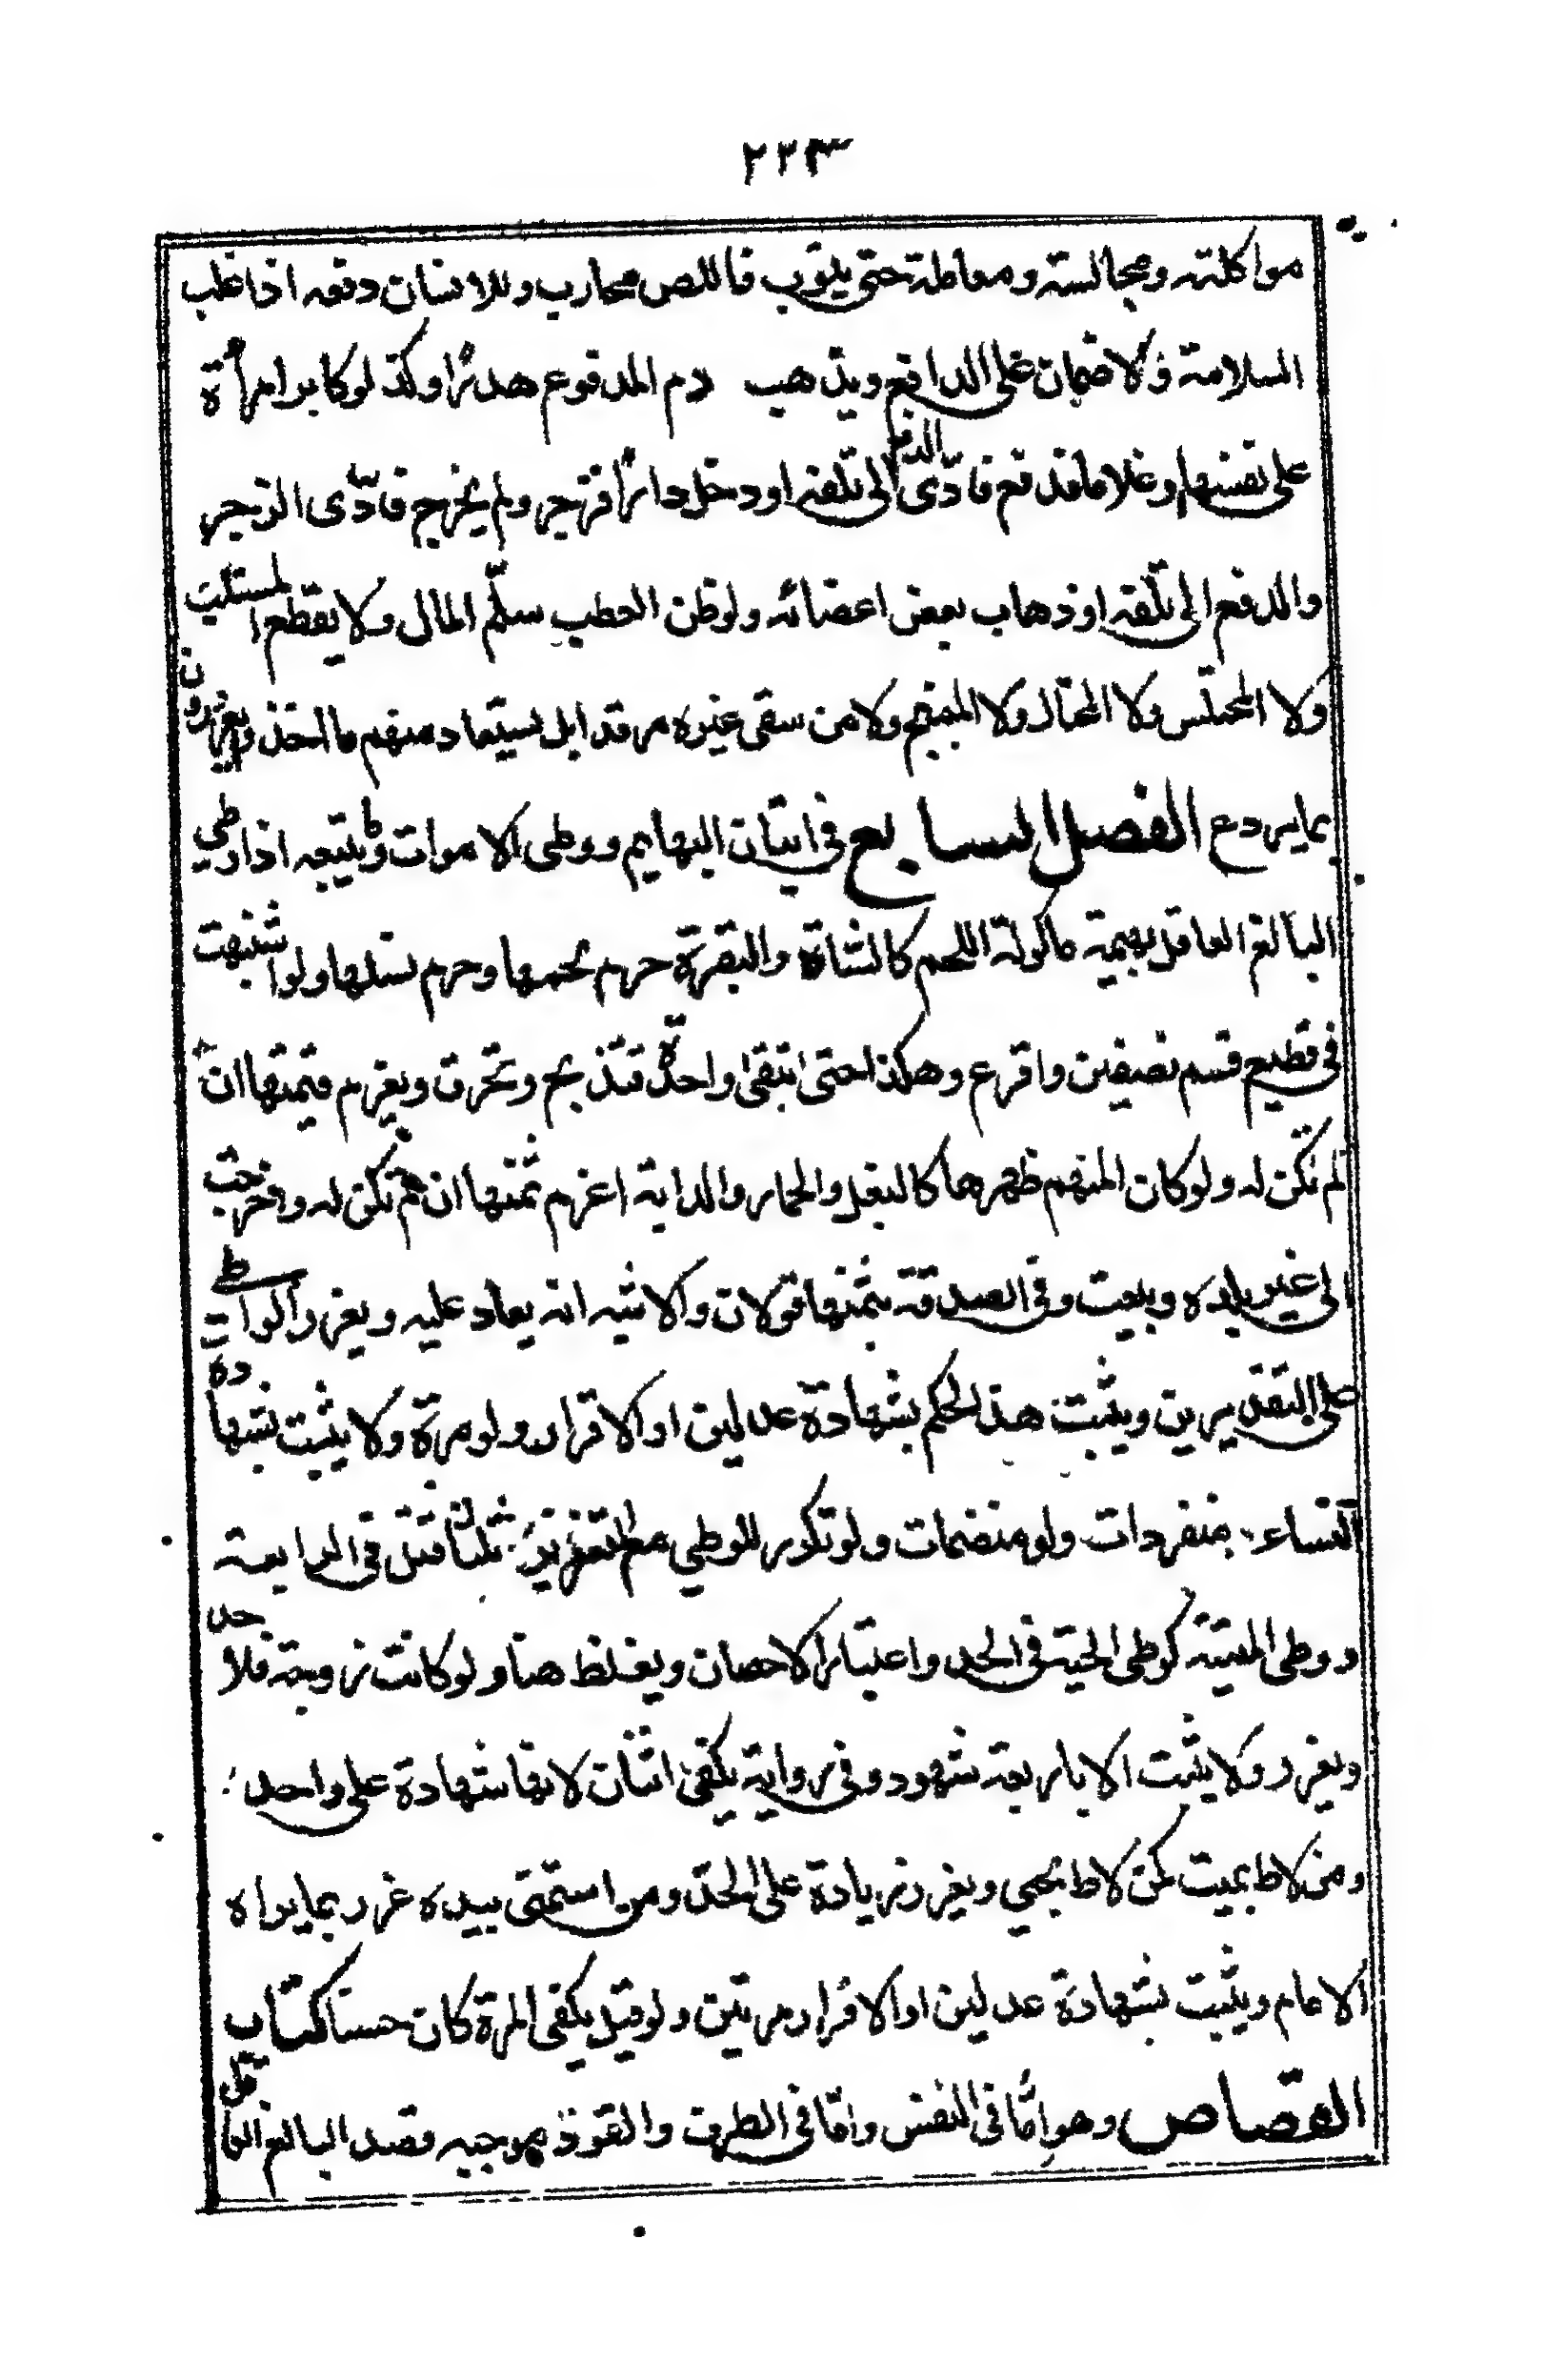 ٢٢٣
مواكلته ومجالسته ومعاملة حتى يتوب فاللص محارب وللانسان دفعه اذا غلب
السلامة ولا ضمان على الدافع ويذهب دم المدفوع هدرا وكذ لو كابر امرأة
على نفسها او غلاما فدفع فادّى الدفع الى تلفه او دخل دارًا فزجر ولم يخرج فادّى الزجر
والدفع الى تلفه او ذهاب بعض اعضائه ولو ظن العطب سلّم المال ولا يقطع المستلب
ولا المختلس ولا المحتال ولا المبنج ولا من سقى غيره مرقدا بل يستعاد منهم ما اخذ ويعزرون
بما يردع الفصل السابع في اتيان البهايم ووطى الاموات وما يتبعه اذا وطي
البالغ العاقل بهيمة ماكولة اللحم كالشاة والبقرة حرم لحمها وحرم نسلها ولو اشتبهت
في قطيع قسم نصفين واقرع وهكذا حتى تبقى واحدة فتذبح وتحرق ويغرم قيمتها ان
لم تكن له ولو كان المهم ظهرها كالبغل والحمار والدابة اغرم ثمنها ان لم تكن له واخرجت
الى غير بلده وبيعت وفي الصدقة بثمنها قولان والاشبه انه يعاد عليه ويعزر الواطي
على التقديرين ويثبت هذا الحكم بشهادة عدلين او الاقرار ولو مرة ولا يثبت بشهادة
النساء منفردات ولو منضمات ولو تكرر للوطي مع التعزير ثلثا قتل في الرابعة
ووطى الميتة كوطى الحية في الحد واعتبار الاحصان ويغلظ هنا ولو كانت زوجته فلا حد
ويعزر ولا يثبت الا باربعة شهود وفي رواية يكفي اثنان لانها شهادة على واحد
ومن لاط بميت كمن لاط بحي ويعزر زيادة على الحد ومن استمنى بيده عزر بما يراه
الامام ويثبت بشهادة عدلين او الاقرار مرتين ولو قيل يكفي المرة كان حسنا كتاب
القصاص وهو امّا في النفس وامّا في الطرف والقود موجبه قصد البالغ العاقل